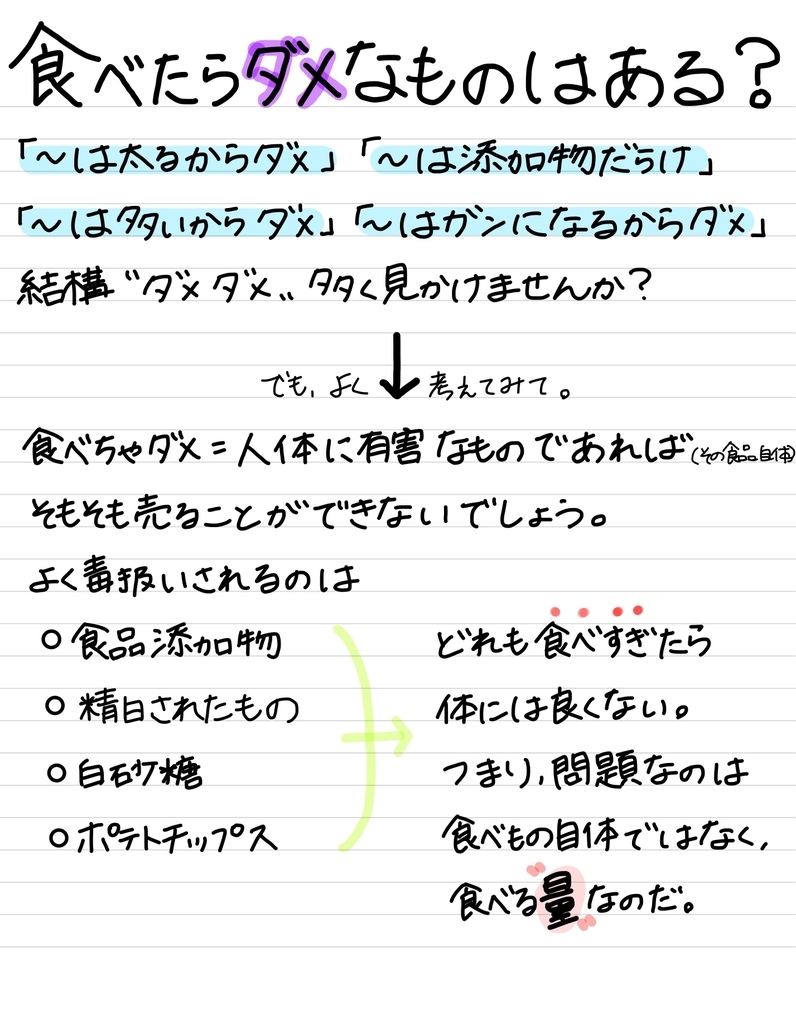 食べたらダメなものはある?
「〜は太るからダメ」「〜は添加物だらけ」
「〜は多いからダメ」「〜はガンになるからダメ」
結構〝ダメダメ〟多く見かけませんか?
でも、よく考えてみて。
食べちゃダメ=人体に有害なものであれば(その食品自体)
そもそも売ることができないでしょう。
よく毒扱いされるのは
○食品添加物
○精白されたもの
○白砂糖
○ポテトチップス
どれも食べすぎたら
体には良くない。
つまり、問題なのは
食べもの自体ではなく、
食べる量なのだ。